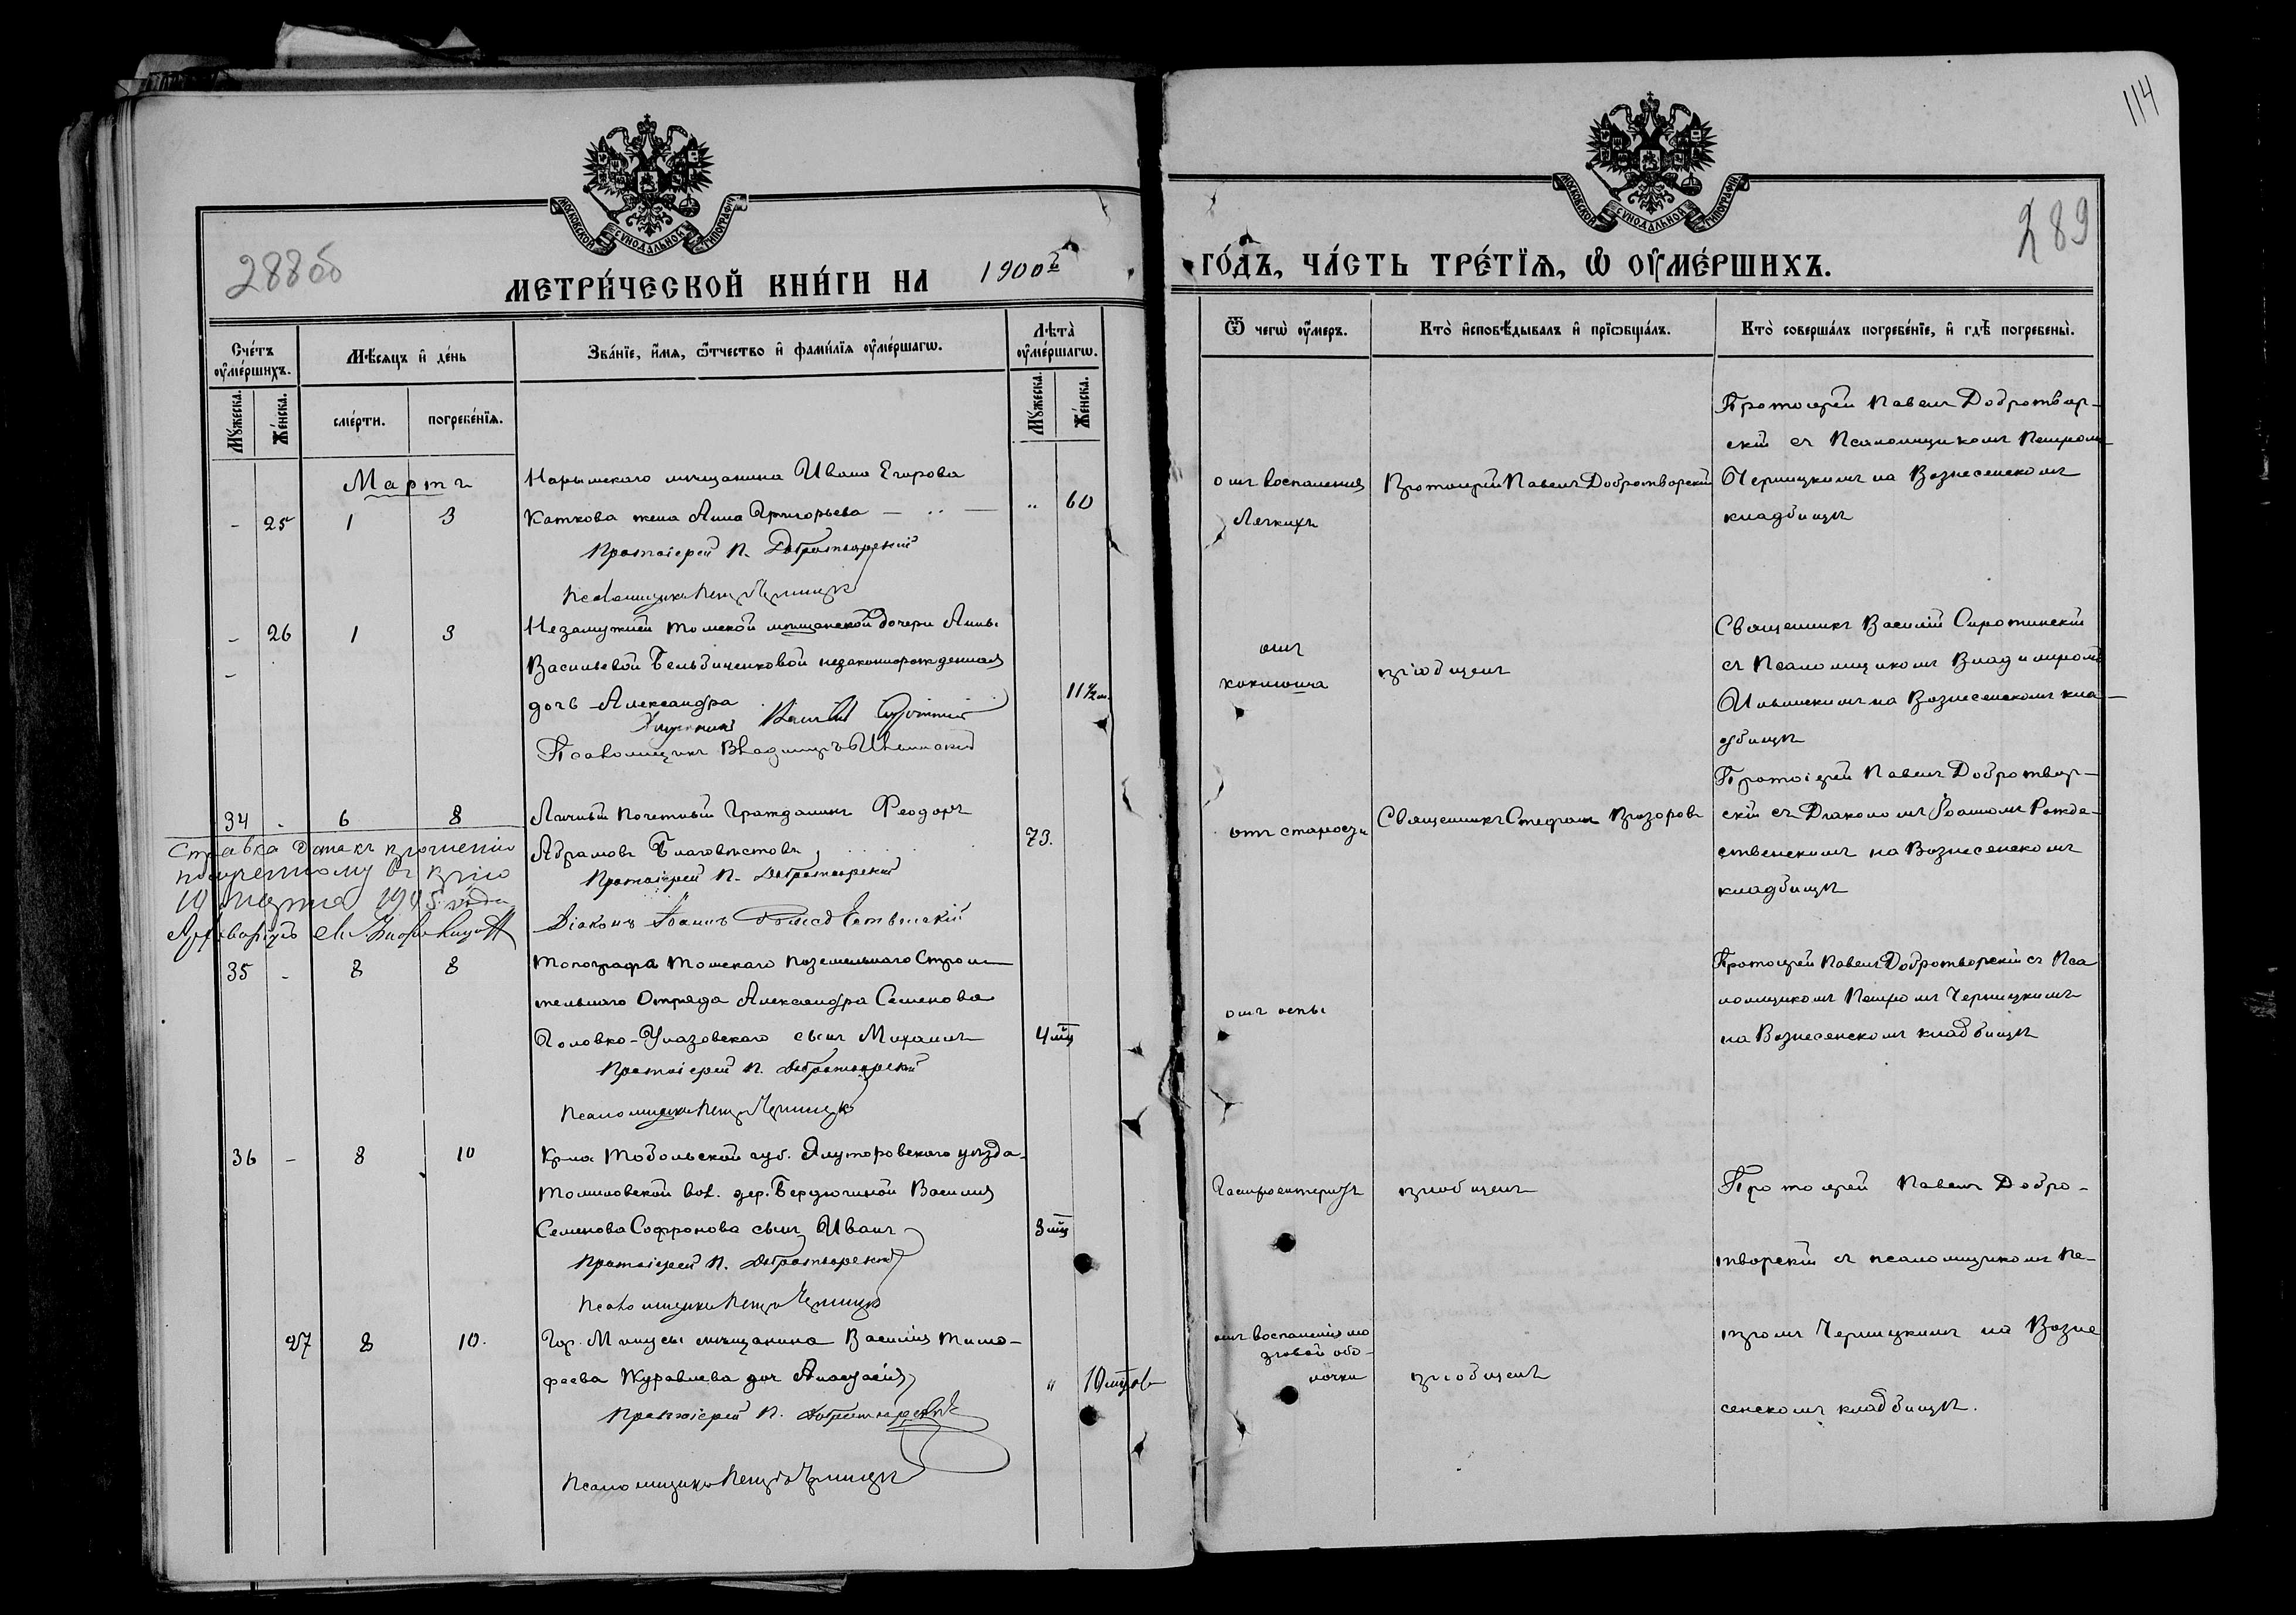 114
288об
289
МОСКОВСКОЙ СѴНОДАЛЬНОЙ ТИПОГРАФІИ
МОСКОВСКОЙ СѴНОДАЛЬНОЙ ТИПОГРАФІИ
МЕТРИ́ЧЕСКОЙ КНИ́ГИ НА 1900й
ГО́ДЪ, ЧА́СТЬ ТРЕ́ТЇѦ, Ѡ҆ ОУ҆МЕ́РШИХЪ.
Сче́тъ оу҆ме́ршихъ.
Мꙋ́жеска.
Же́нска.
Мѣ́сяцъ и҆ де́нь
сме́рти.
погребе́нїѧ.
Зва́нїе, и҆́мѧ, ѻ҆́тчество и҆ фами́лїѧ оу҆ме́ршагѡ.
Лѣта̀ оу҆ме́ршагѡ.
Мꙋ́жеска.
Же́нска.
Ѿ чегѡ̀ оу҆́меръ.
Кто̀ и҆сповѣ́дывалъ и҆ прїѡбща́лъ.
Кто̀ соверша́лъ погребе́нїе, и҆ гдѣ̀ погребены̀.
Мартъ
- 25 1 3
Нарымскаго мѣщанина Ивана Егорова
Каткова жена Анна Григорьева — " —
" 60
Протоіерей П. Добротворскій
Псаломщикъ Петръ Черницкій
отъ воспаленія
Легкихъ
Протоіерей Павелъ Добротворскій
Протоіерей Павелъ Добротвор-
скій съ Псаломщикомъ Петромъ
Черницкимъ на Вознесенскомъ
кладбищѣ
- 26 1 3
Незамужней томской мѣщанской дочери Анны
Васильевой Бельбиченковой незаконнорожденная
дочь Александра
11½ м.
Священникъ Василій Сиротинскій
Псаломщикъ Владиміръ Ильинскій
отъ
коклюша
пріобщенъ
Священникъ Василій Сиротинскій
съ Псаломщикомъ Владиміромъ
Ильинскимъ на Вознесенскомъ кла-
дбищѣ
34 - 6 8
Личный Почетный Гражданинъ Феодоръ
Абрамовъ Благовѣстовъ
73.
Протоіерей П. Добротворскій
Діаконъ Іоаннъ Рождественскій
Справка дана къ прошенію
10 марта 1905 года
Архиваріусъ
отъ старости
Священникъ Стефанъ Прозоровъ
Протоіерей Павелъ Добротвор-
скій съ Діакономъ Іоанномъ Рожде-
ственскимъ на Вознесенскомъ
кладбищѣ
35 - 8 8
Топографа Томскаго Поземельнаго Строи-
тельнаго Отряда Александра Семенова
Головко-Улазовскаго сынъ Михаилъ
4 мѣц
Протоіерей П. Добротворскій
Псаломщикъ Петръ Черницкій
отъ оспы
Протоіерей Павелъ Добротворскій съ Пса
ломщикомъ Петромъ Черницкимъ
на Вознесенскомъ кладбищѣ
36 - 8 10
Кр-на Тобольской губ. Ялуторовского уѣзда
Томиловской вол. дер. Бердюгиной Василія
Семенова Софронова сынъ Иванъ
3 мѣц
Протоіерей П. Добротворскій
Псаломщикъ Петръ Черницкій
Гастроэнтеритъ
пріобщенъ
Протоіерей Павелъ Добро-
творскій съ псаломщикомъ Пе-
тромъ Черницкимъ на Возне
сенскомъ кладбищѣ.
27 8 10.
Гор. Минусы мѣщанина Василія Тимо-
феева Журавлева доч Анастасія
" 10 мѣцов
Протоіерей П. Добротворскій
Псаломщикъ Петръ Черницкій
отъ воспаленія мо
зговой обо-
лочки
пріобщенъ